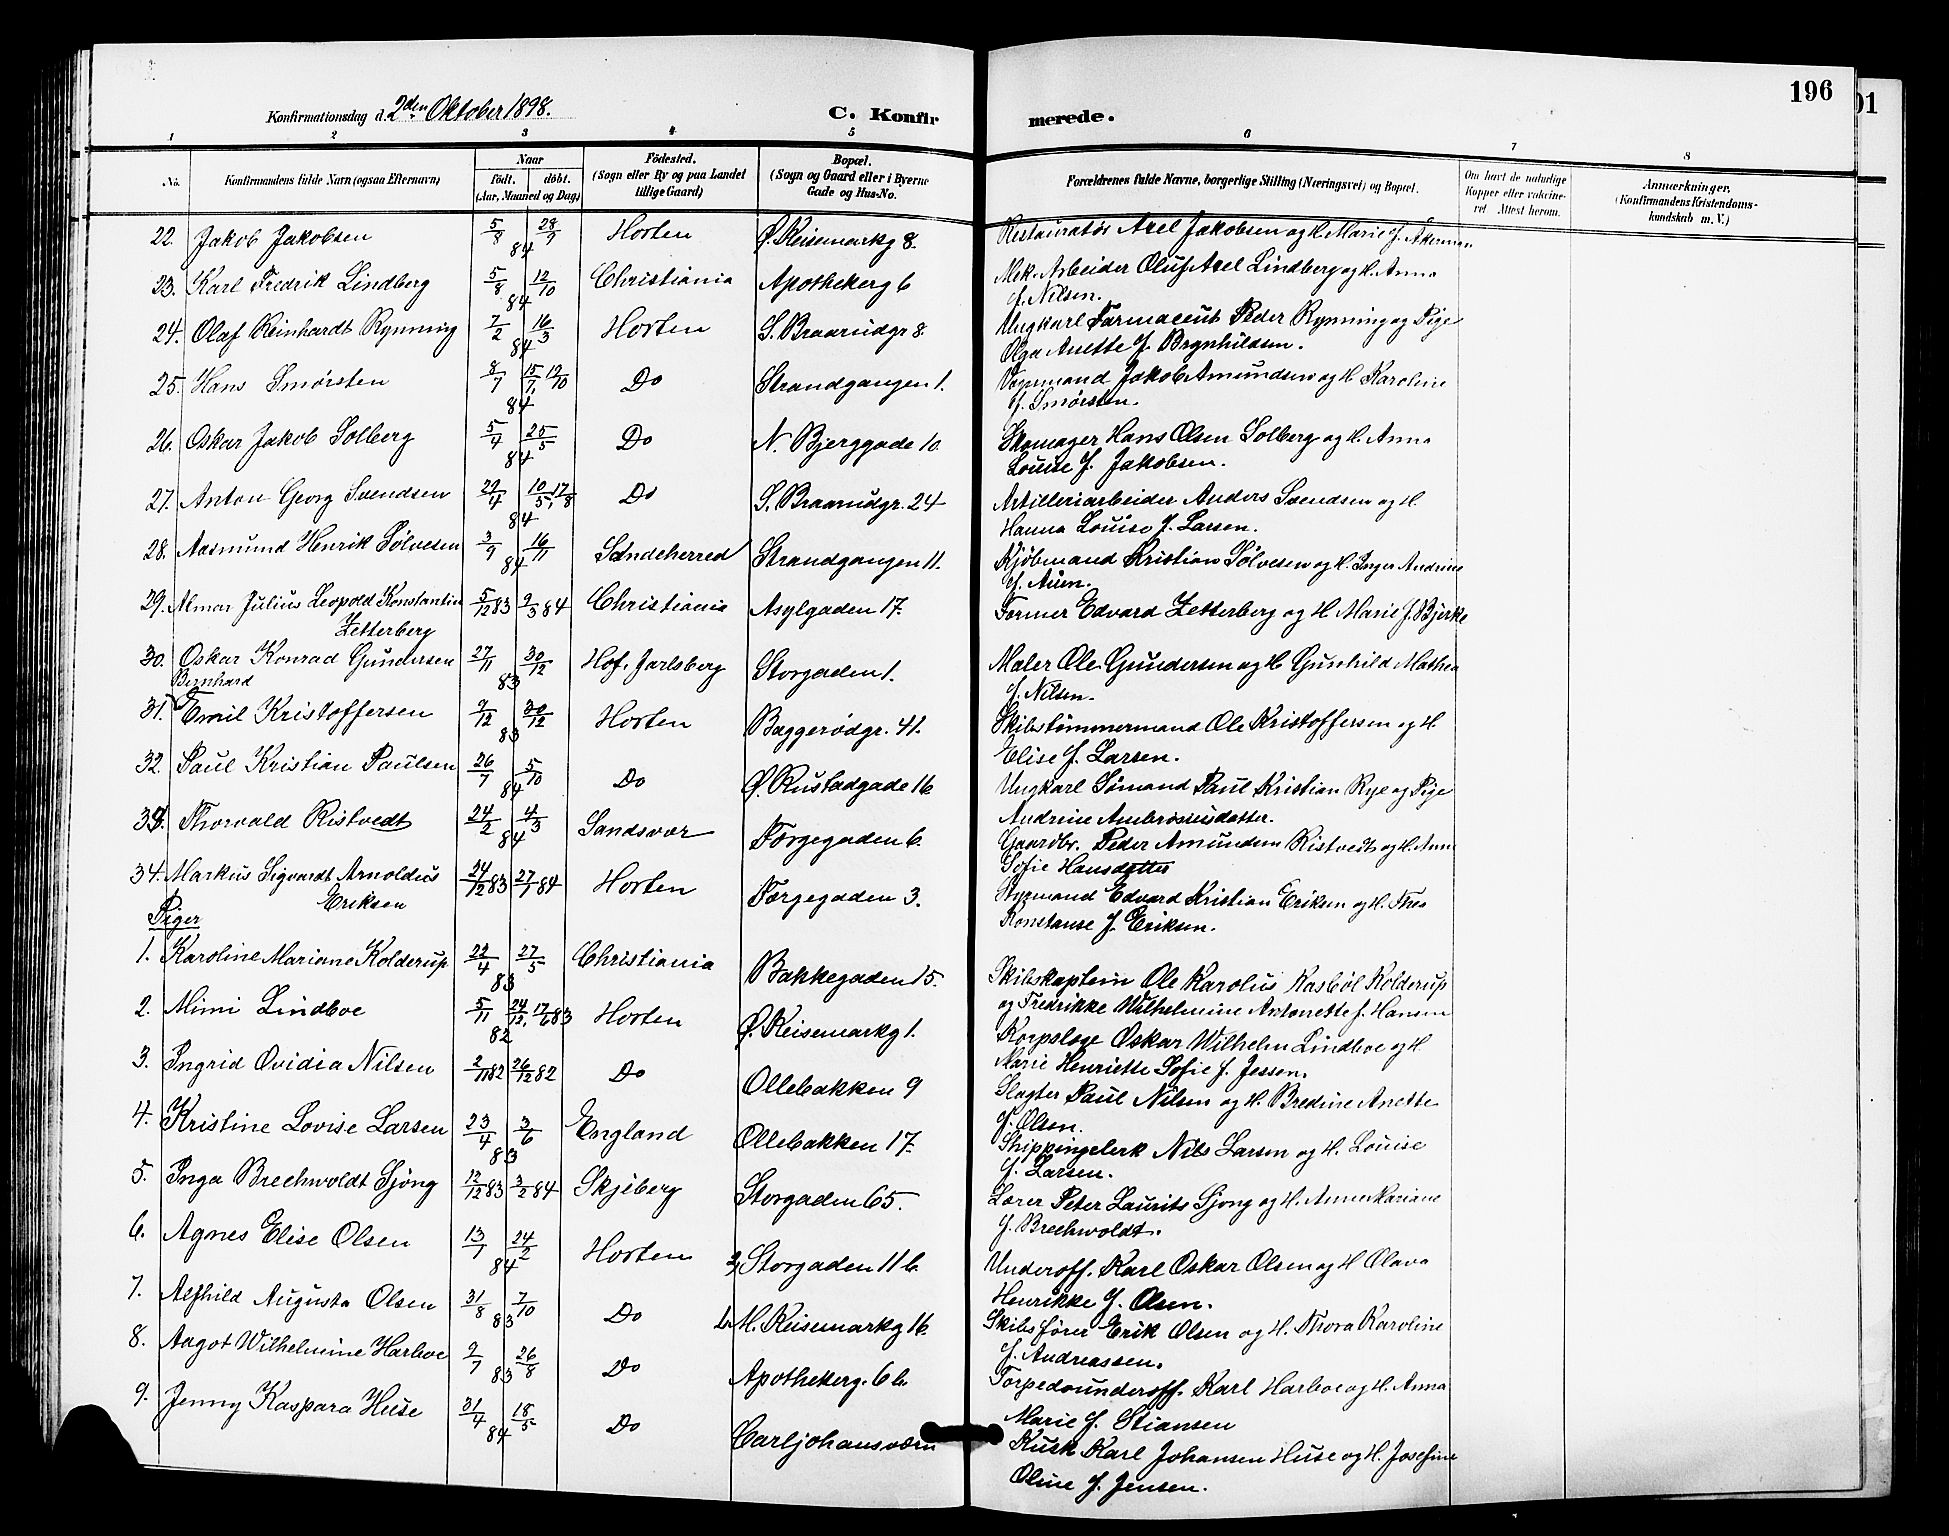 196
01
Konfirmationsdag d. 2den Oktober 1898.
C. Konfirmerede.
1 2 3 4 5 6 7 8
No. Konfirmandens fulde Navn (ogsaa Efternavn) Naar født. døbt. (Aar, Maaned og Dag) Fødested. (Sogn eller By og paa Landet tillige Gaard) Bopæl. (Sogn og Gaard eller i Byerne Gade og Hus-No. Forældrenes fulde Navne, borgerlige Stilling (Næringsvei) og Bopæl. Om havt de naturlige Kopper eller vaccineret Attest herom. Anmærkninger. (Konfirmandens Kristendomskundskab m. V.)
22. Jakob Jakobsen 5/8 28/9 84 Horten Ø. Keisemarkg 8. Restauratør Axel Jakobsen og H. Marie f. Åkerman
23. Karl Fredrik Lindberg 5/8 12/10 84 Christiania Apothekerg 6 Mek. Arbeider Oluf Axel Lindberg og H. Anna
f. Nilsen.
24. Olaf Reinhardt Rynning 7/2 16/3 84 Horten S. Braarudgr 8. Ungkarl Farmaceut Peder Rynning og Pige
Olga Anette f. Brynhildsen.
25. Hans Smørsten 8/7 15/7, 12/10 84 Do Strandgangen 1. Vognmand Jakob Amundsen og H Karoline
f. Smørsten.
26. Oskar Jakob Solberg 5/4 25/5 84 Do N. Bjerggade 10. Skomager Hans Olsen Solberg og H. Anna
Louise f. Jakobsen.
27. Anton Georg Svendsen 22/4 10/5, 17/8 84 Do S. Braarudgr. 24 Artilleriarbeider Anders Svendsen og H.
Hanna Louise f. Larsen.
28. Aasmund Henrik Sølvesen 3/9 16/11 84 Sandeherred Strandgangen 11. Kjøbmand Kristian Sølvesen og H. Inger Andrine
f. Auen.
29. Almar Julius Leopold Konstantin 5/12 83 2/3 84 Christiania Asylgaden 17. Former Edvard Zetterberg og H Marie f. Bjerke
Zetterberg
30. Oskar Konrad Gundersen 27/11 30/12 83 Hof, Jarlsberg Storgaden 1. Maler Ole Gundersen og H Gunhild Mathea
Bernhard f. Nilsen.
31. Emil Kristoffersen 9/12 30/12 83 Horten Baggerødgr. 41. Skibstømmermand Ole Kristoffersen og H
Elise f. Larsen.
32. Paul Kristian Paulsen 26/7 5/10 84 Do Ø. Rustadgade 16 Ungkarl Sømand Paul Kristian Rye og Pige
Andrine Ambrosiusdatter.
33. Thorvald Ristvedt 24/2 4/3 84 Sandsvær Færgegaden 6. Gaardbr. Peder Amundsen Ristvedt og H. Anne
Sofie Hansdatter
34. Markus Sigvardt Arnoldus 24/12 83 27/1 84 Horten Færgegaden 3. Styrmand Edvard Kristian Eriksen og H. Thea
Eriksen Konstanse f. Eriksen.
Piger
1. Karoline Mariane Kolderup 22/4 27/5 83 Christiania Bakkegaden 15. Skibskaptein Ole Karolus Kasbøl Kolderup
og Fredrikke Wilhelmine Antonette f. Hansen
2. Mimi Lindboe 5/11 82 24/12, 17/6 83 Horten Ø. Keisemarkg 1. Korpslæge Oskar Wilhelm Lindboe og H.
Marie Henriette Sofie f. Jessen.
3. Ingrid Ovidia Nilsen 2/11 82 26/12 82 Do Ollebakken 9 Slagter Paul Nilsen og H. Bredine Anette
f. Olsen.
4. Kristine Lovise Larsen 23/4 3/6 83 England Ollebakken 17. Shippingclerk Nils Larsen og H. Louise
f. Larsen.
5. Inga Brechwoldt Sjöng 12/12 83 3/2 84 Skjeberg Storgaden 65. Lærer Peter Laurits Sjong og H. Anne Mariane
f. Brechwoldt.
6. Agnes Elise Olsen 13/1 24/2 84 Horten Storgaden 11 b. Underoff. Karl Oskar Olsen og H Olava
Henrikke f. Olsen.
7. Alfhild Augusta Olsen 31/8 7/10 83 Do M. Keisemarkg 16. Skibsfører Erik Olsen og H. Thora Karoline
f. Andreassen.
8. Aagot Wilhelmine Harboe 2/7 26/8 83 Do Apothekerg. 6 b. Torpedounderoff. Karl Harboe og H. Anna
Marie f. Stiansen
9. Jenny Kaspara Huse 31/4 18/5 84 Do Carljohansværn Kusk Karl Johansen Huse og H. Josefine
Oline f. Jensen.